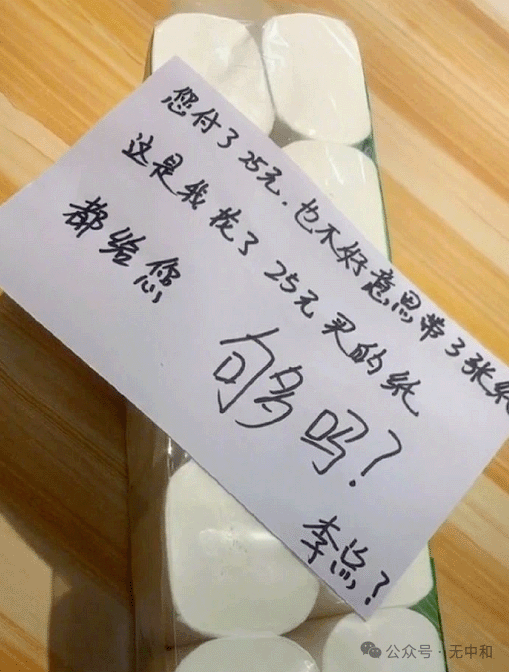 您付了25元.也不好意思带了张纸
这是我花了25元买的纸
都给您
够吗?
李总?
公众号·无中和